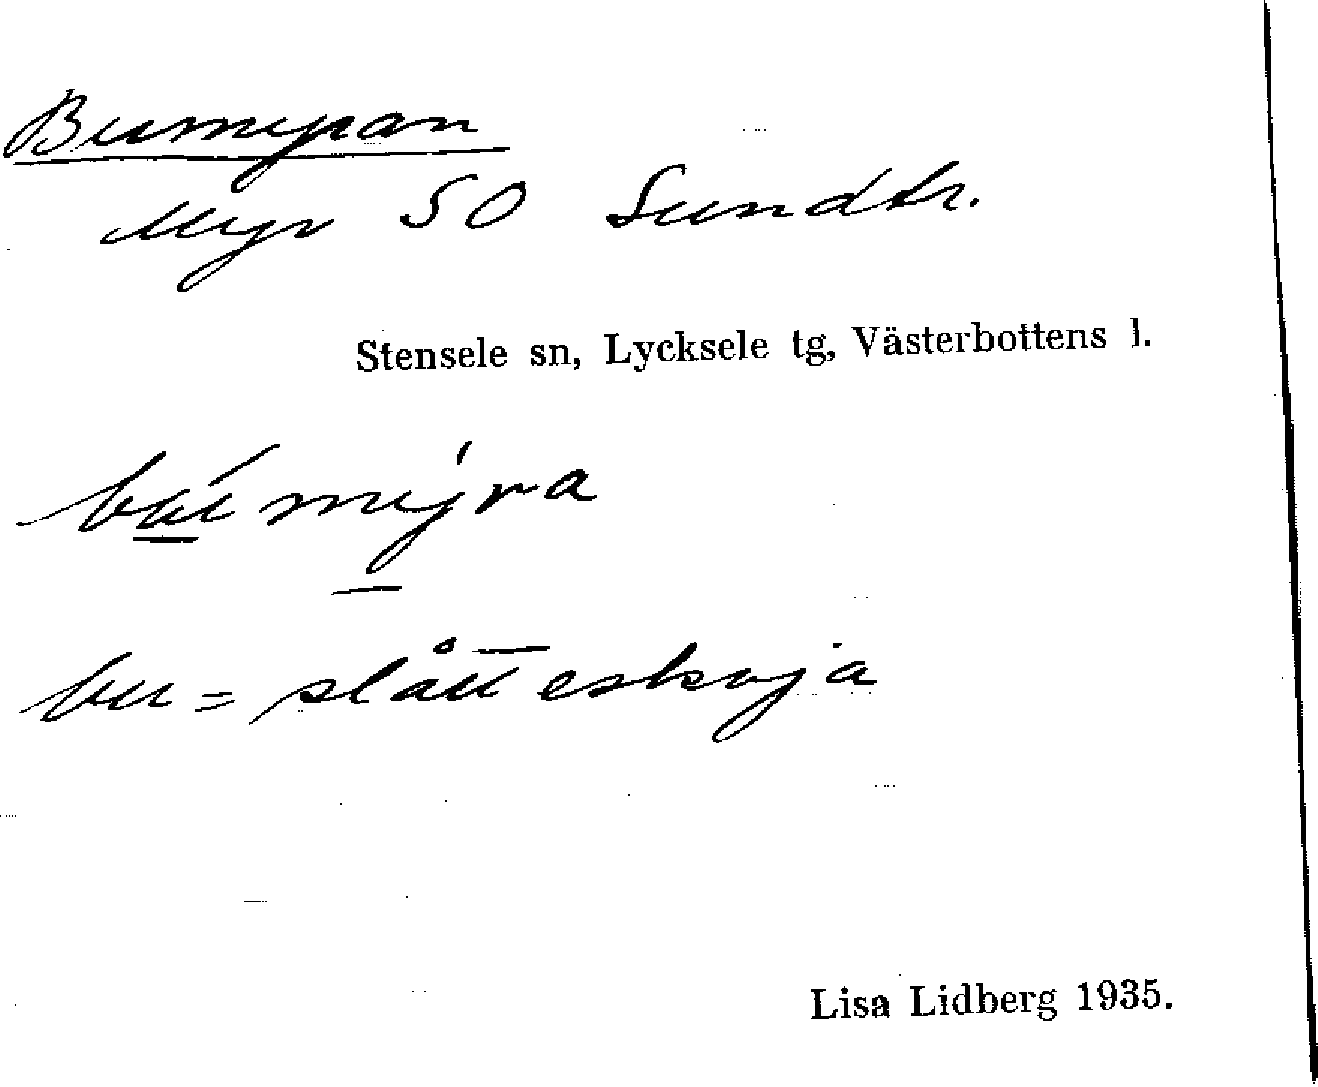 Bumyran
Myr SO Sundtr.
Stensele sn, Lycksele tg, Västerbottens l.
búmýra
bu = slåtteskoja
Lisa Lidberg 1935.